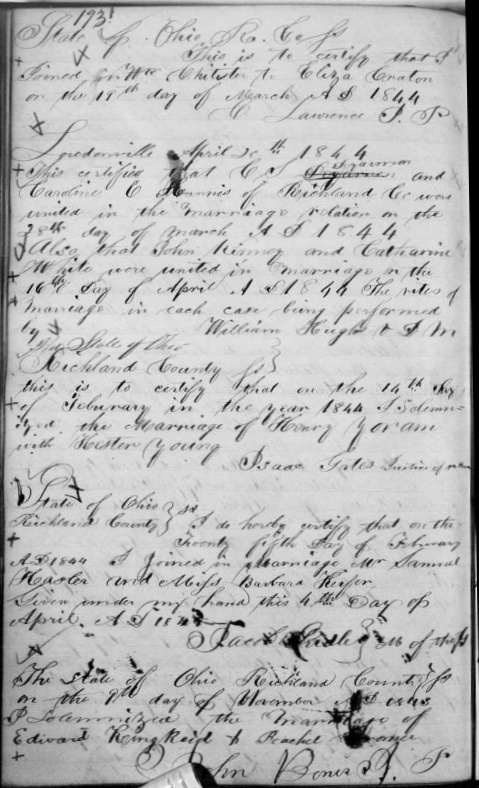 193
State of Ohio R. Co ss
This is to certify that I
Joined Wm Chitister to Eliza Craton
on the 19th day of March A D 1844
C Lawrence J. P
Loudonville April 20th 1844
This certifies that C S and
Caroline E of Richland Co were
united in the marriage relation on the
28th day of march A D 1844
Also that John Kinney and Catharine
White were united in marriage on the
16th Day of April A D 1844 The rites of
marriage in each case being performed
by William Hughs
The State of Ohio
Richland County ss
this is to certify that on the 14th Day
of Feburary in the year 1844 I Solemn-
ized the Marriage of Henry Yoram
with Hester Young
Isaac Gates
State of Ohio } ss
Richland County } I do hereby certify that on the
Twenty fifth Day of Febuary
A D 1844 I Joined in Marriage Mr Samuel
Hasler and Miss Barbara Keifer
Given under my hand this 4th Day of
April A D 1844
Jacob
The State of Ohio Richland County ss
on the 9th day of November A D 1843
I Solemnized the Marriage of
Edward Kinkeid & Rachel
John J. P